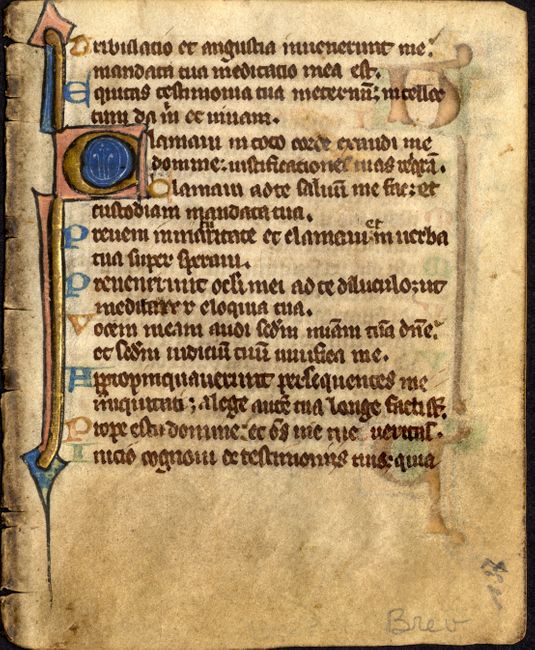 Tribulacio et angustia invenerunt me:
mandata tua meditacio mea est.
Equitas testimonia tua in eternum: intellec
tum da m et vivam.
Clamavi in toto corde exaudi me
domine: iustificationes tuas reqram.
Clamavi ad te salvum me fac: et
custodiam mandata tua.
Preveni in maturitate et clamavi: et in verba
tua super speravi.
Prevenerunt oculi mei ad te diluculo: ut
meditarer eloquia tua.
Vocem meam audi scdm miam tua dne:
et scdm iudiciu tuu vivifica me.
Appropinquaverunt persequentes me
iniquitati: a lege aute tua longe facti st.
Prope es tu domine: et ōs vie tue veritas.
Inicio cognovi de testimoniis tuis: quia
Brev